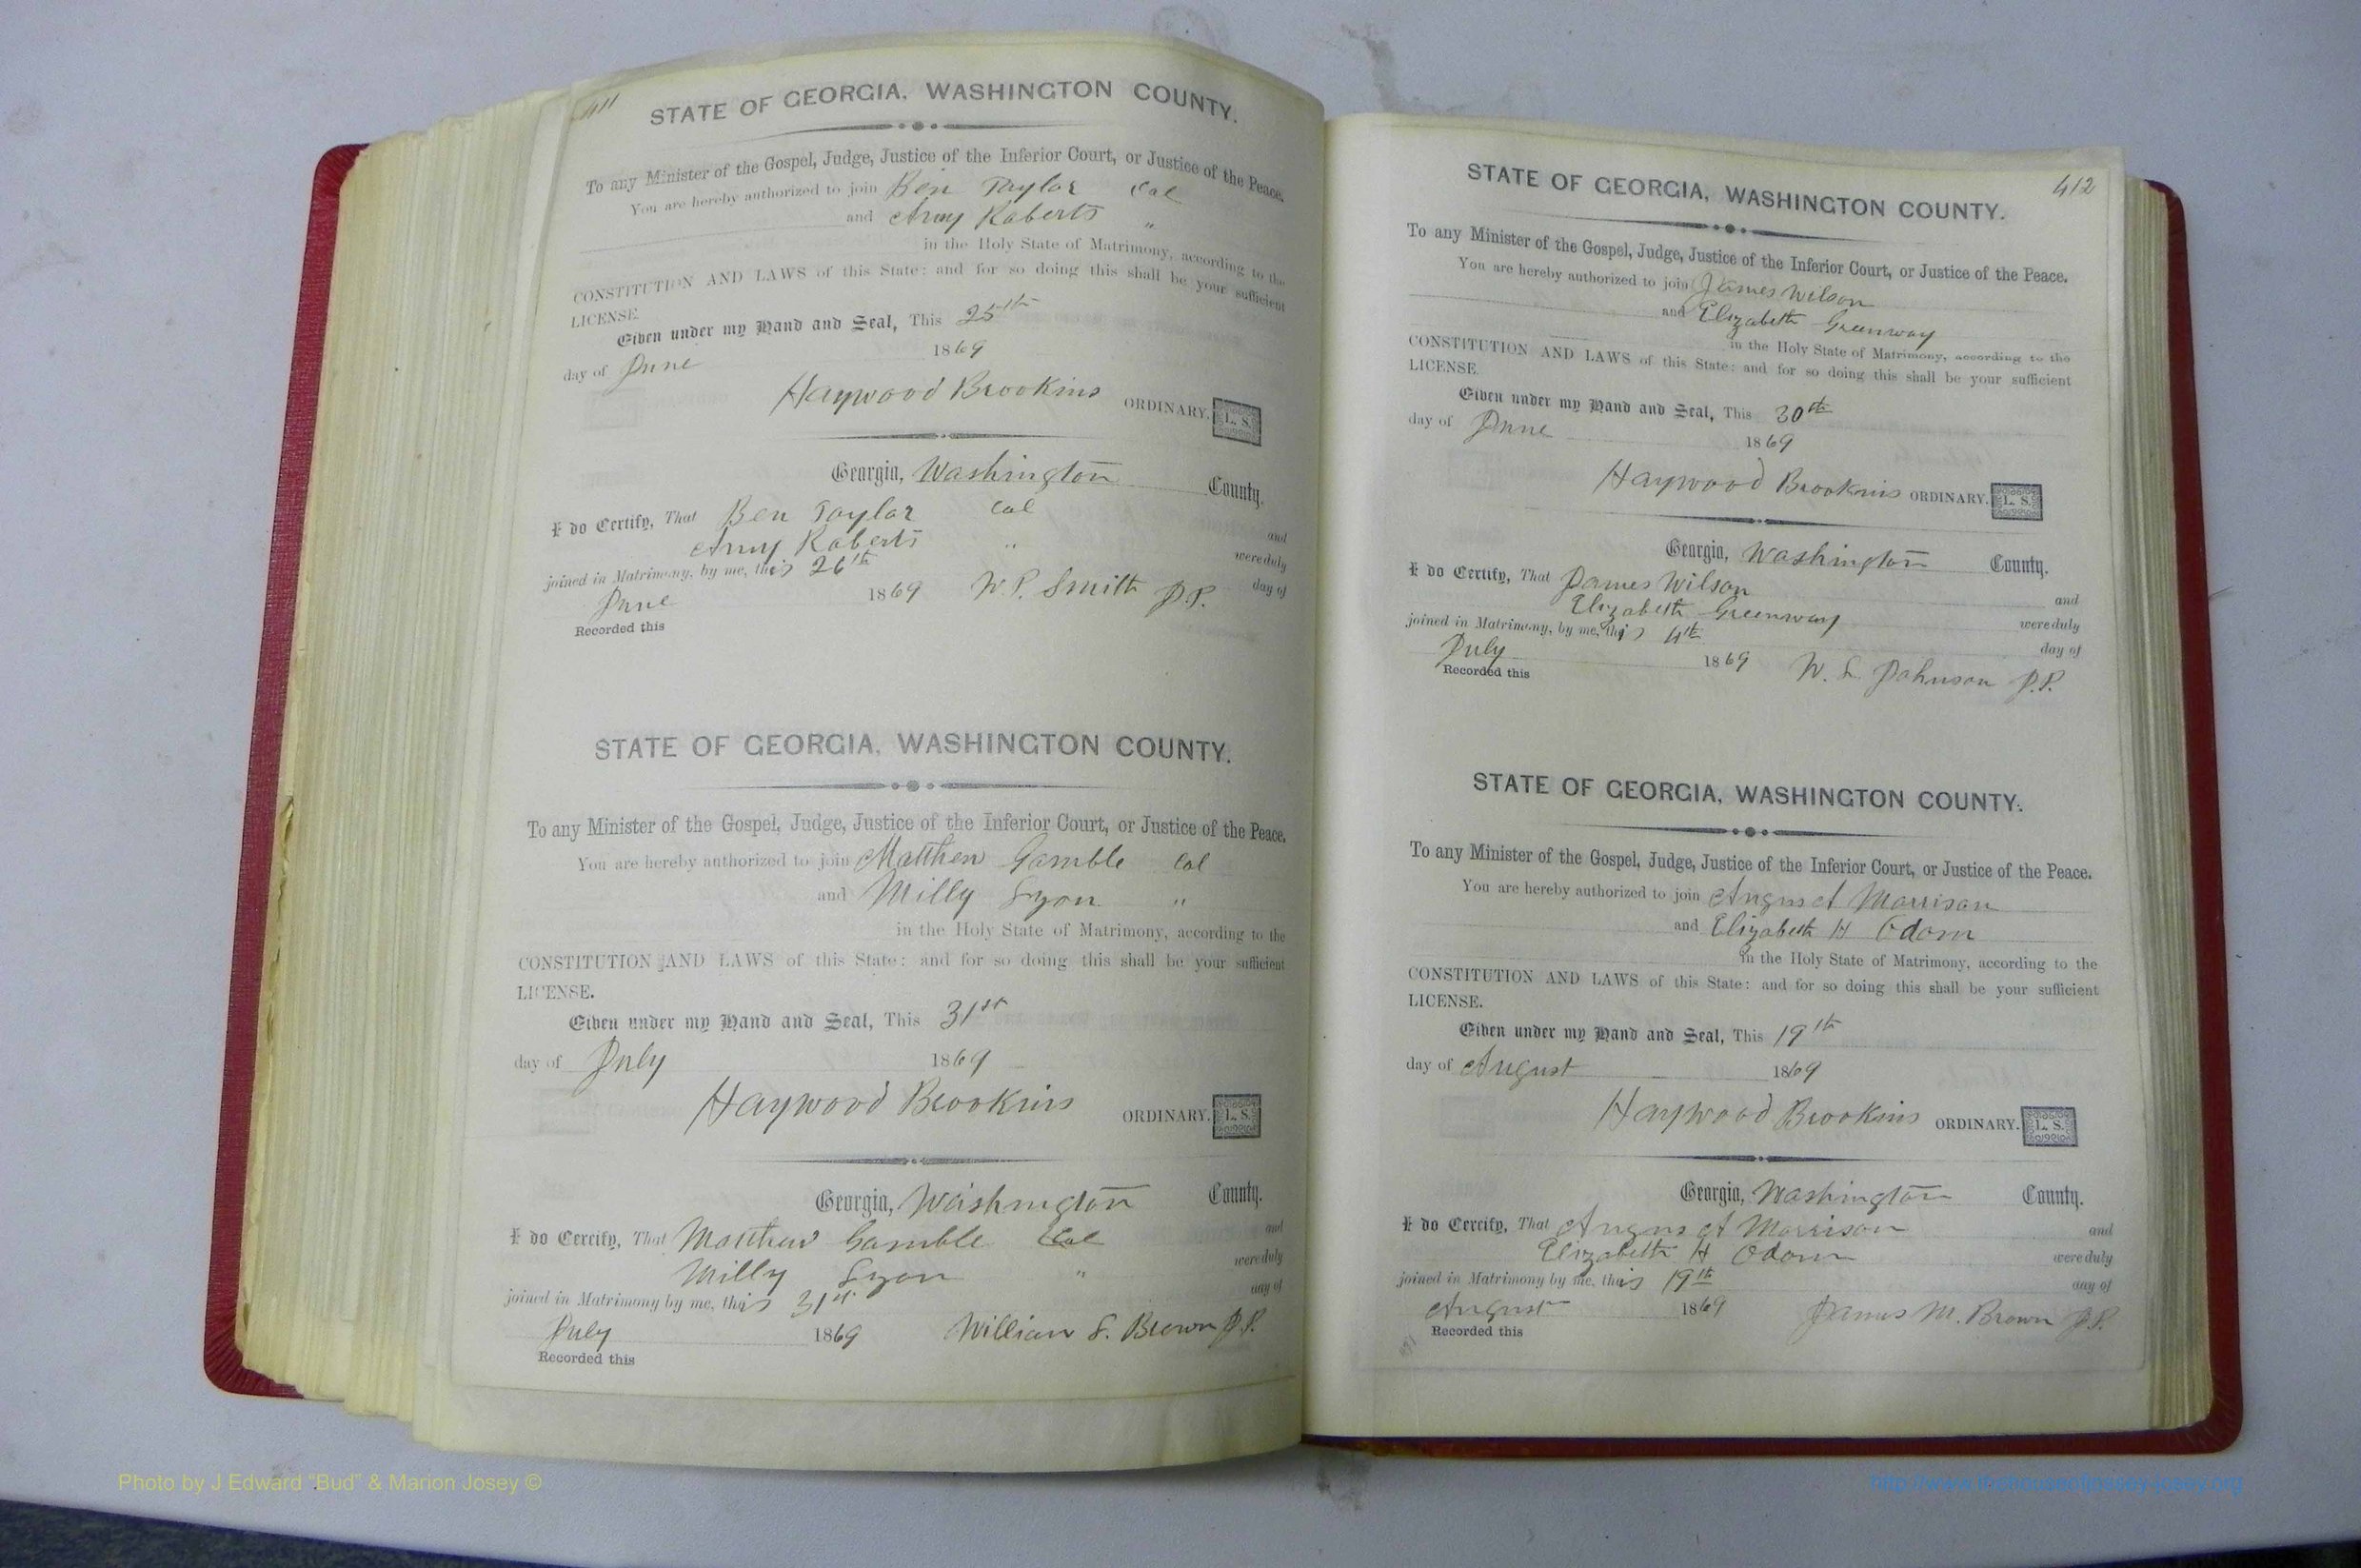 411
STATE OF GEORGIA, WASHINGTON COUNTY.
To any Minister of the Gospel, Judge, Justice of the Inferior Court, or Justice of the Peace.
You are hereby authorized to join Ben Taylor Col
and Amy Roberts "
in the Holy State of Matrimony, according to the
CONSTITUTION AND LAWS of this State: and for so doing this shall be your sufficient
LICENSE.
Given under my Hand and Seal, This 25th
day of June 1869
Haywood Brookins ORDINARY. L. S.
Georgia, Washington County.
I do Certify, That Ben Taylor Col and
Amy Roberts " were duly
joined in Matrimony, by me, this 26th day of
June 1869 W. P. Smith J.P.
Recorded this
STATE OF GEORGIA, WASHINGTON COUNTY.
To any Minister of the Gospel, Judge, Justice of the Inferior Court, or Justice of the Peace.
You are hereby authorized to join Matthew Gamble Col
and Milly Lyon "
in the Holy State of Matrimony, according to the
CONSTITUTION AND LAWS of this State: and for so doing this shall be your sufficient
LICENSE.
Given under my Hand and Seal, This 31st
day of July 1869
Haywood Brookins ORDINARY. L. S.
Georgia, Washington County.
I do Certify, That Matthew Gamble Col and
Milly Lyon " were duly
joined in Matrimony by me, this 31st day of
July 1869 William S. Brown J.P.
Recorded this
412
STATE OF GEORGIA, WASHINGTON COUNTY.
To any Minister of the Gospel, Judge, Justice of the Inferior Court, or Justice of the Peace.
You are hereby authorized to join James Wilson
and Elizabeth Greenway
in the Holy State of Matrimony, according to the
CONSTITUTION AND LAWS of this State: and for so doing this shall be your sufficient
LICENSE.
Given under my Hand and Seal, This 30th
day of June 1869
Haywood Brookins ORDINARY. L. S.
Georgia, Washington County.
I do Certify, That James Wilson and
Elizabeth Greenway were duly
joined in Matrimony, by me, this 4th day of
July 1869 W. L. Johnson J.P.
Recorded this
STATE OF GEORGIA, WASHINGTON COUNTY.
To any Minister of the Gospel, Judge, Justice of the Inferior Court, or Justice of the Peace.
You are hereby authorized to join Angus A Morrison
and Elizabeth H Odom
in the Holy State of Matrimony, according to the
CONSTITUTION AND LAWS of this State: and for so doing this shall be your sufficient
LICENSE.
Given under my Hand and Seal, This 19th
day of August 1869
Haywood Brookins ORDINARY. L. S.
Georgia, Washington County.
I do Certify, That Angus A Morrison and
Elizabeth H Odom were duly
joined in Matrimony by me, this 19th day of
August 1869 James M. Brown J.P.
Recorded this
Photo by J Edward “Bud” & Marion Josey ©